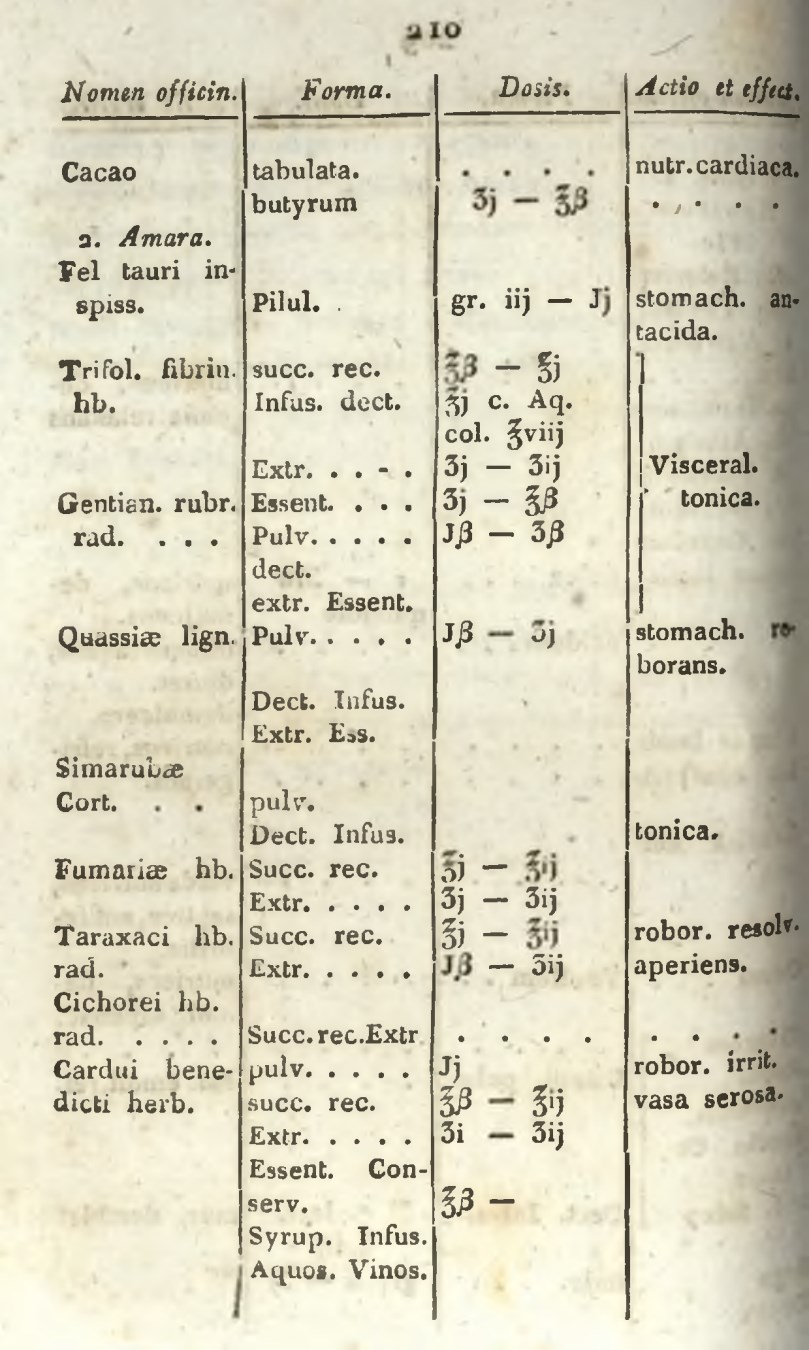 210
Nomen officin. Forma. Dosis. Actio et effect.
Cacao tabulata. . . . . nutr.cardiaca.
butyrum ʒj — ℥β . . . .
2. Amara.
Fel tauri in-
spiss. Pilul. gr. iij — Jj stomach. an-
tacida.
Trifol. fibrin. succ. rec. ℥β — ℥j
hb. Infus. dect. ℥j c. Aq.
col. ℥viij
Extr. . . - . ʒj — ʒij Visceral.
Gentian. rubr. Essent. . . . ʒj — ℥β tonica.
rad. . . . Pulv. . . . . Jβ — ʒβ
dect.
extr. Essent.
Quassiæ lign. Pulv. . . . . Jβ — ʒj stomach. ro-
borans.
Dect. Infus.
Extr. Ess.
Simarubæ
Cort. . . pulv.
Dect. Infus. tonica.
Fumariæ hb. Succ. rec. ℥j — ℥ij
Extr. . . . . ʒj — ʒij
Taraxaci hb. Succ. rec. ℥j — ℥ij robor. resolv.
rad. Extr. . . . . Jβ — ʒij aperiens.
Cichorei hb.
rad. . . . . Succ.rec.Extr . . . . . . . .
Cardui bene- pulv. . . . . Jj robor. irrit.
dicti herb. succ. rec. ℥β — ℥ij vasa serosa.
Extr. . . . . ʒi — ʒij
Essent. Con-
serv. ℥β —
Syrup. Infus.
Aquos. Vinos.